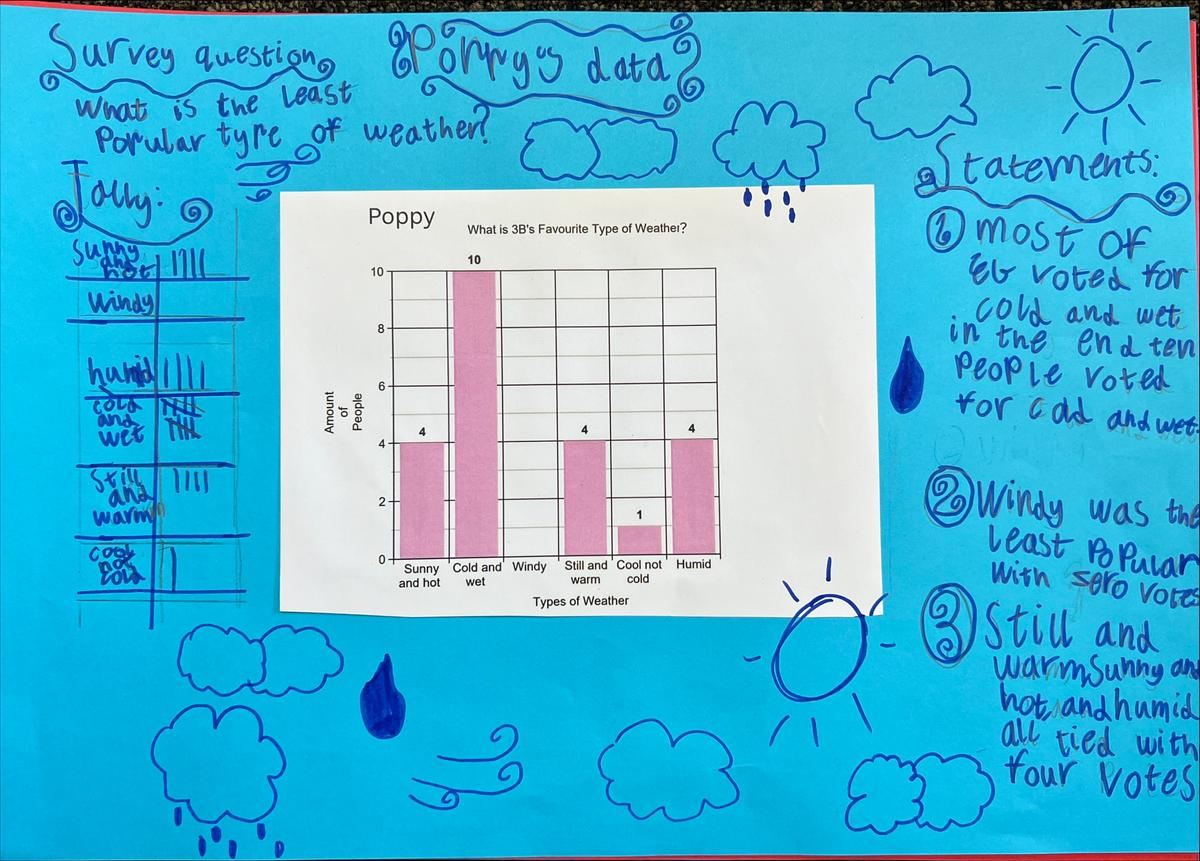 Survey question
What is the least
Popular type of weather?
Poppy's data
Tally:
Sunny
and
hot
Windy
humid
cold
and
wet
Still
and
warm
cool
not
cold
Poppy
What is 3B's Favourite Type of Weather?
10
10
8
6
4
2
0
Amount
of
People
4
4
1
4
Sunny
and hot
Cold and
wet
Windy
Still and
warm
Cool not
cold
Humid
Types of Weather
Statements:
1 most of
voted for
cold and wet
in the end ten
People voted
for cold and wet.
2 Windy was the
least Popular
with sero votes
3 Still and
warm, Sunny and
hot, and humid
all tied with
four votes